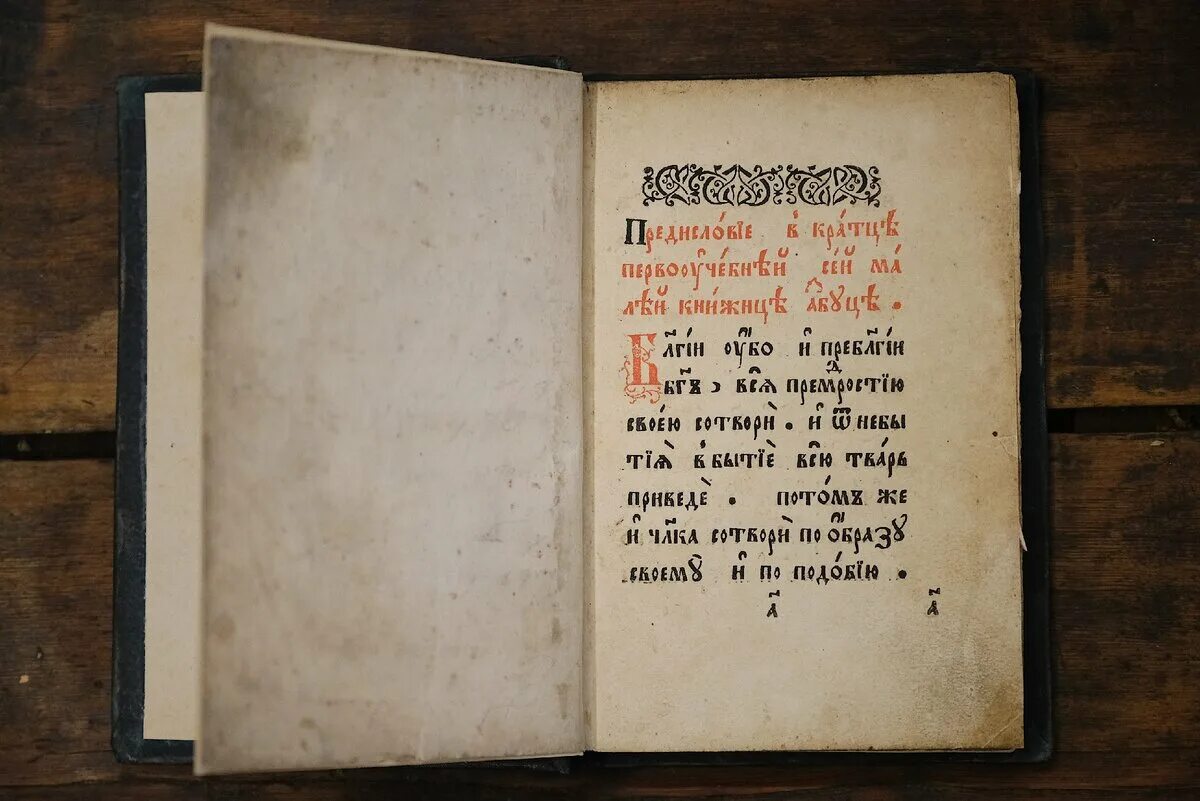 Предисло́вїе в҆ кра́тцѣ
первоꙋ҆че́бнѣй се́й ма́
лѣ́й кни́жицѣ а҆́збуцѣ .
Бл҃гі́й ᲂу҆́бо и҆ пребл҃гі́й
бг҃ъ , всѧ̑ премⷣростїю
свое́ю сотворѝ . и҆ ѿ небы
тїѧ̀ в бытїѐ всю̑ тва́рь
приведѐ . пото́мъ же
и҆ чл҃ка сотворѝ по ѻ҆́бразꙋ
своемꙋ̀ и҆ по подо́бїю .
а҃ а҃